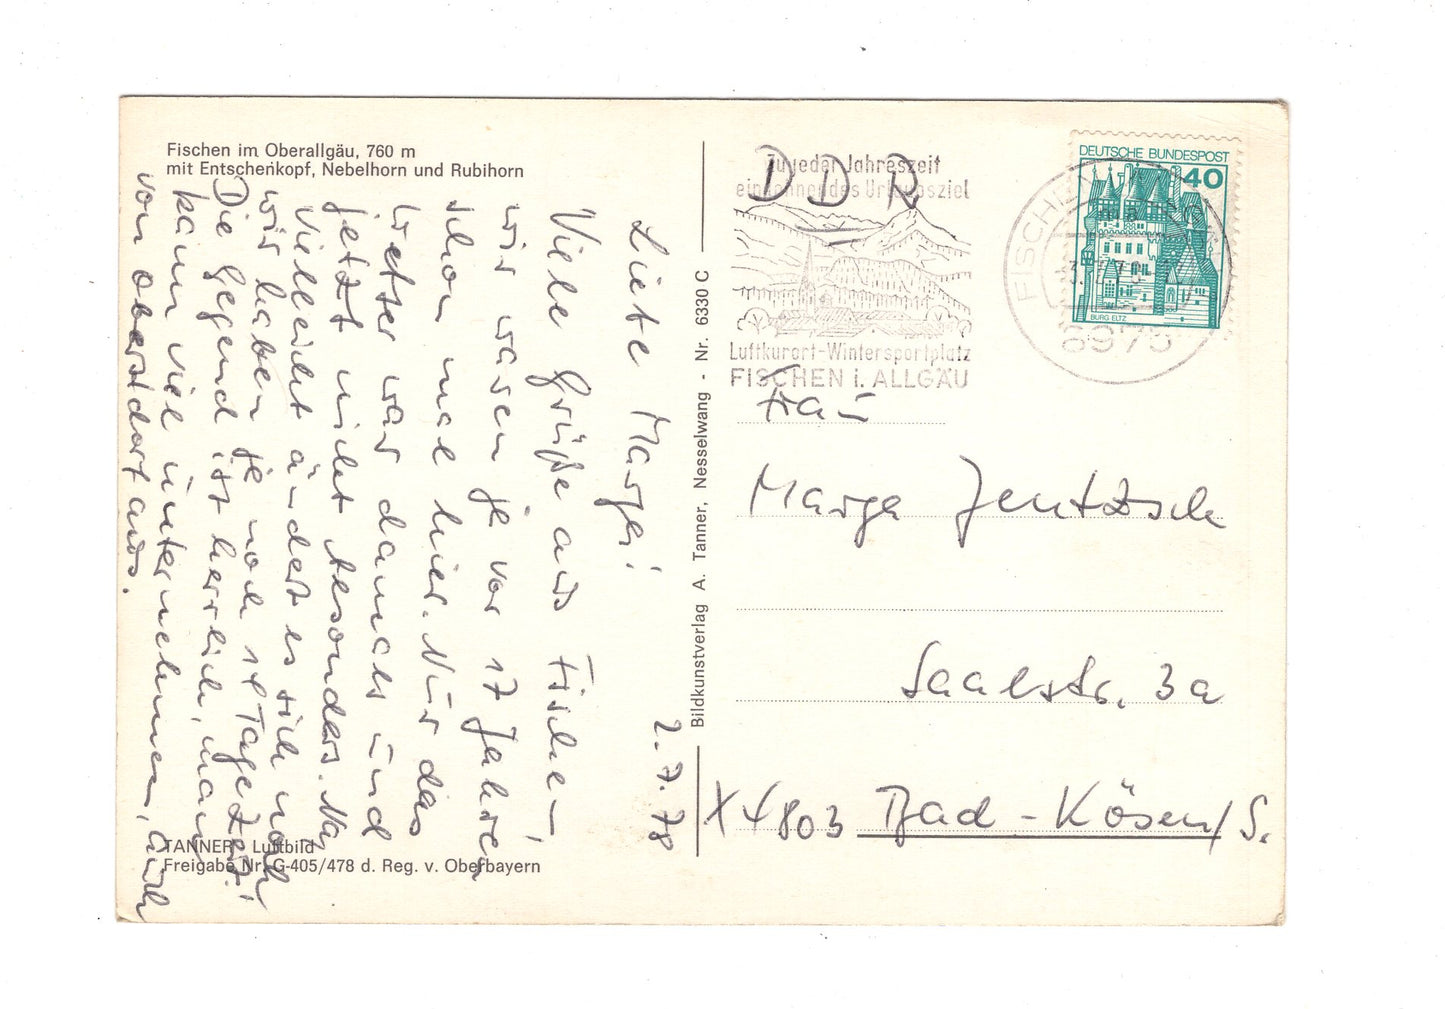 Fischen im Oberallgäu, 760 m
mit Entschenkopf, Nebelhorn und Rubihorn
2.7.78
Liebe Marga!
Viele Grüße aus Fischen,
wir waren ja vor 17 Jahren
schon mal hier. Nur das
Wetter war damals und
jetzt nicht besonders. Na,
vielleicht ändert es sich noch
wir haben ja noch 14 Tage Zeit!
Die Gegend ist herrlich, man
kann viel unternehmen, auch
von Oberstdorf aus.
TANNER - Luftbild
Freigabe Nr. G-405/478 d. Reg. v. Oberbayern
Bildkunstverlag A. Tanner, Nesselwang - Nr. 6330 C
DDR
Zu jeder Jahreszeit
ein lohnendes Urlaubsziel
Luftkurort-Wintersportplatz
FISCHEN i. ALLGÄU
FISCHEN
8975
DEUTSCHE BUNDESPOST
40
BURG ELTZ
Frau
Marga Jentzsch
Saalstr. 3a
X 4803 Bad-Kösen/S.